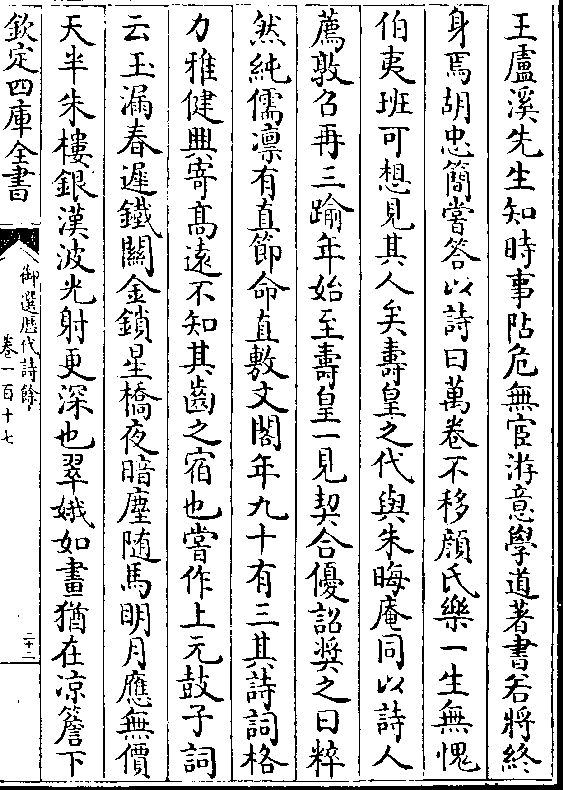 王盧溪先生知時事阽危無宦游意學道著書若將終
身焉胡忠簡嘗答以詩曰萬卷不移顔氏樂一生無愧
伯夷班可想見其人矣壽皇之代與朱晦庵同以詩人
薦敦召再三踰年始至壽皇一見契合優詔奬之曰粹
然純儒凛有直節命直敷文閣年九十有三其詩詞格
力雅健興寄髙遠不知其齒之宿也嘗作上元鼓子詞
云玉漏春遲鐵闗金鎖星橋夜暗塵随馬明月應無價
天半朱樓銀漢波光射更深也翠娥如畫猶在凉簷下
欽定四庫全書
御選歴代詩餘
卷一百十七
二十二